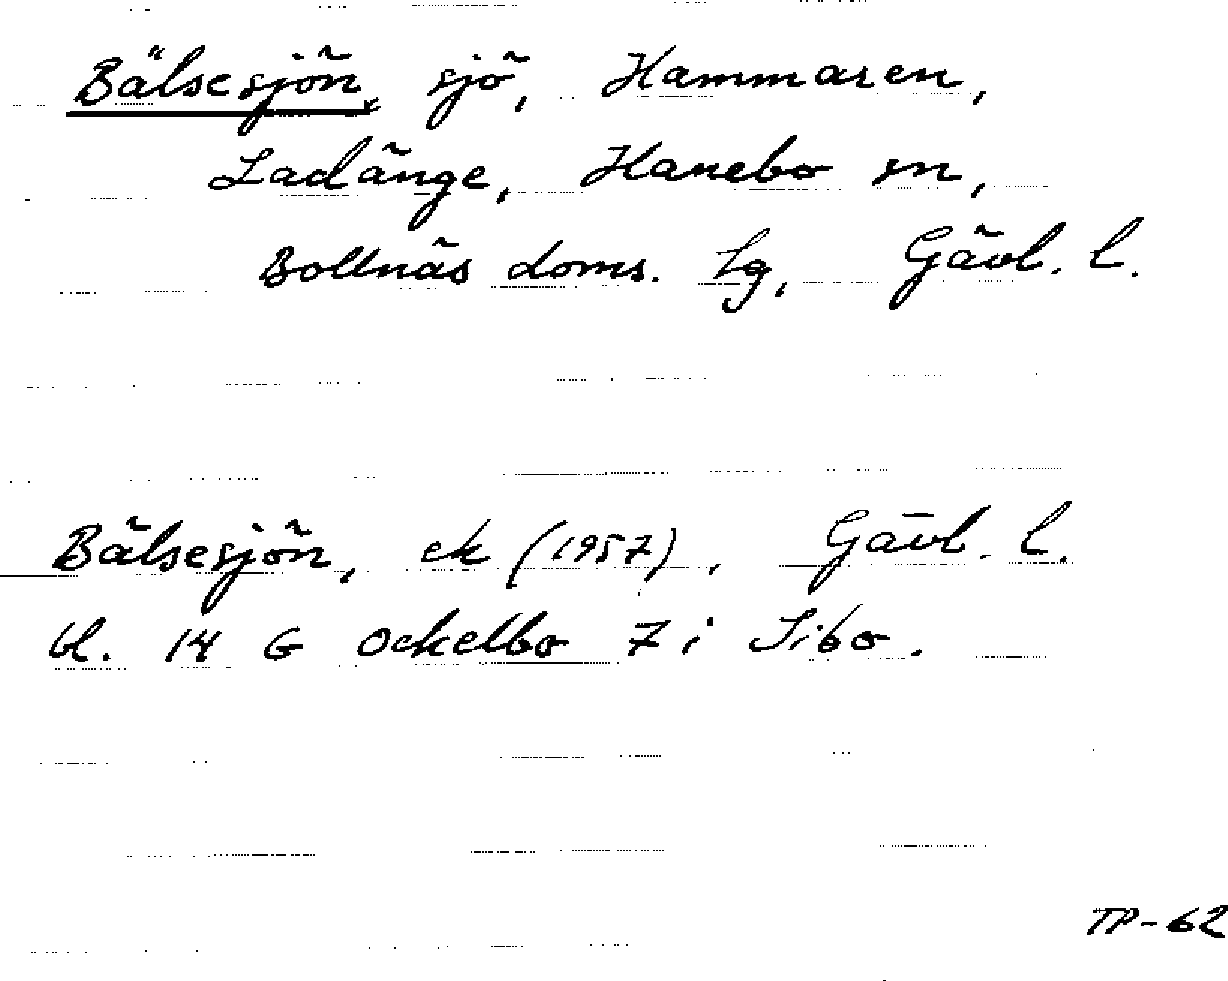 Bälsesjön, sjö, Hammaren,
Ladänge, Hanebo sn,
Bollnäs doms. lg, Gävl. l.
Bälsesjön, ek (1957), Gävl. l.
bl. 14 G Ockelbo 7 i Sibo.
TP-62